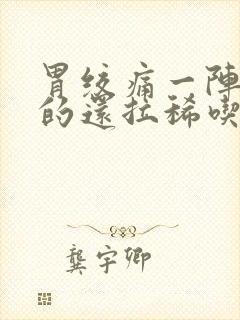 胃絞痛一陣
的還拉稀喫
龔宇卿